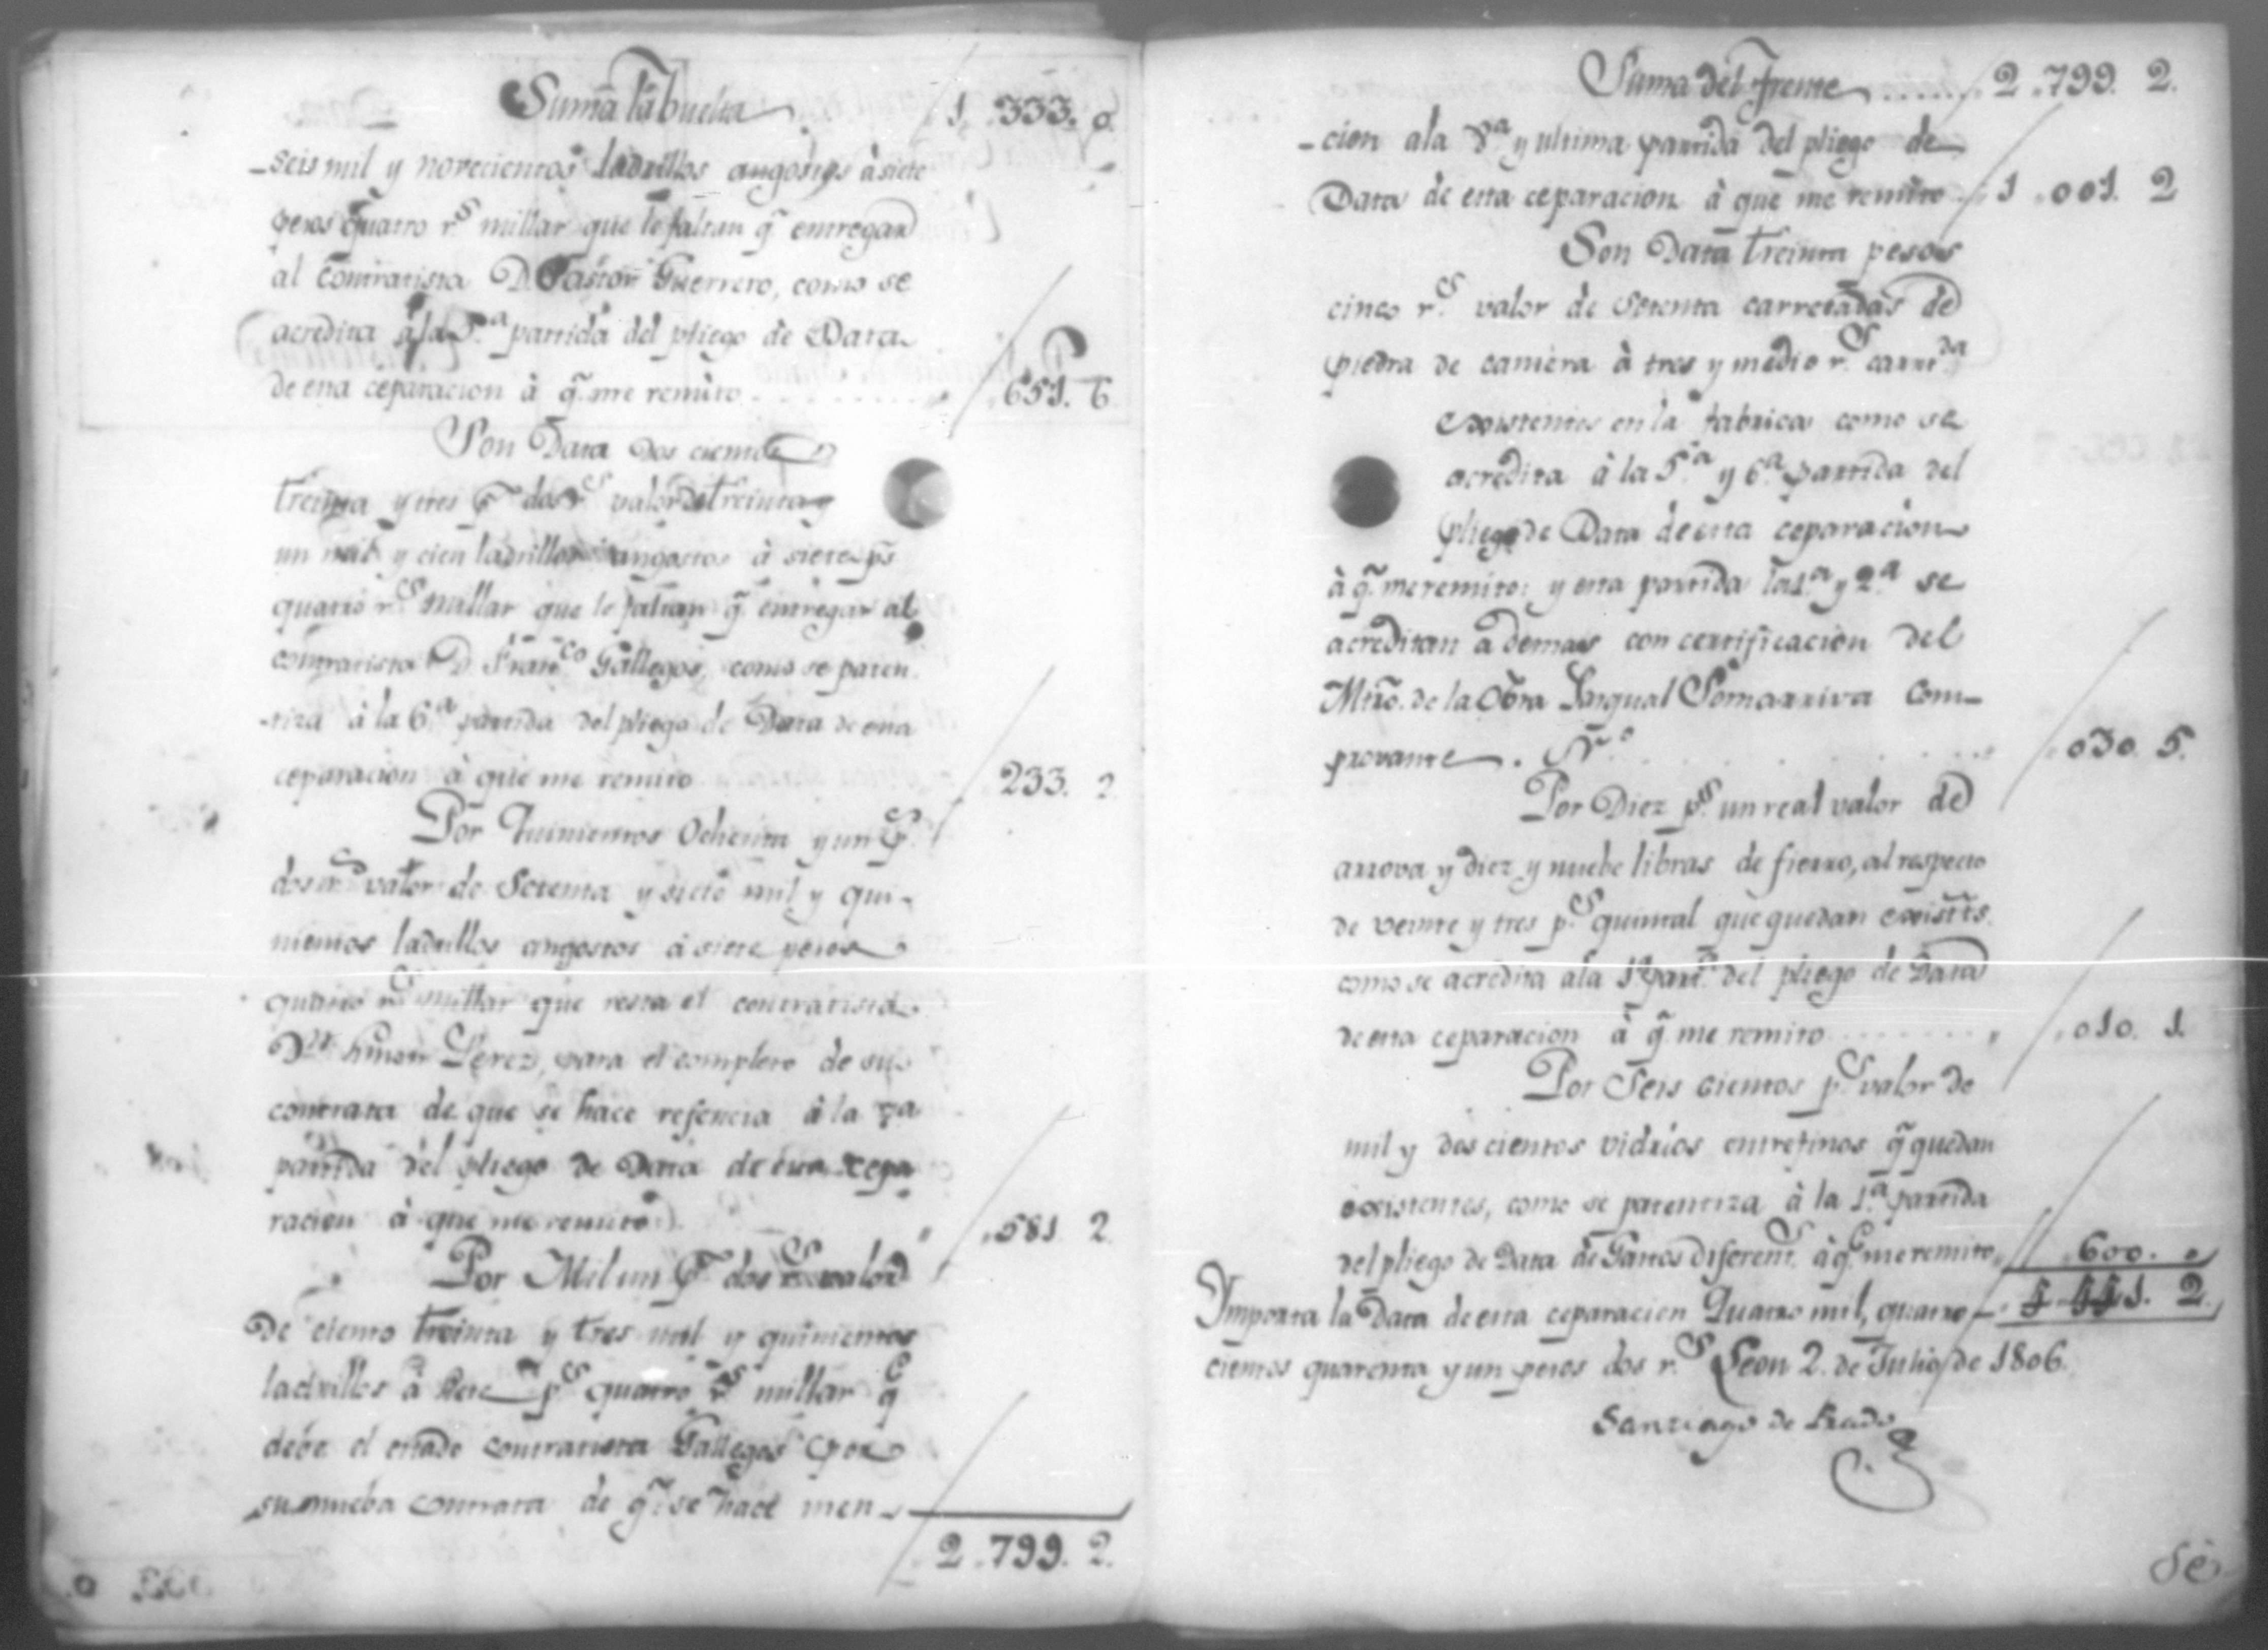 Suma la buelta 1.333. 0.
-seis mil y novecientos ladrillos angostos à siete
pesos quatro r.s millar que le faltan q.e entregar
al contratista D. Pastor Guerrero, como se
acredita à la 5.a partida del pliego de Data
de esta ceparacion à q.e me remito 651. 6
Son Data dos cientos
treinta y tres p.s dos r.s valor de treinta y
un mil y cien ladrillos angostos à siete p.s
quatro r.s millar que le faltan q.e entregar al
contratista D. Fran.co Gallegos, como se paten-
-tiza à la 6.a partida del pliego de Data de esta
ceparacion à que me remito 233. 2
Por Quinientos Ochenta y un p.s
dos r.s valor de Setenta y siete mil y qui-
nientos ladrillos angostos à siete pesos
quatro r.s millar que resta el contratista
D.n Simon Perez, para el completo de su
contrata de que se hace refencia à la 7a
partida del pliego de Data de esta cepa
racion à que me remito 581 2
Por Mil un p.s dos r.s valor
de ciento treinta y tres mil y quinientos
ladrillos à siete p.s quatro r.s millar q.e
debe el citado contratista Gallegos por
su nueba contrata de q.e se hace men-
2.799. 2.
Suma del Frente 2.799. 2.
-cion a la 8.a y ultima partida del pliego de
Data de esta ceparacion à que me remito 1.001. 2
Son Data treinta pesos
cinco r.s valor de Setenta carretadas de
piedra de cantera à tres y medio r.s carre.da
existentes en la fabrica como se
acredita à la 5.a y 6.a partida del
pliego de Data de esta ceparacion
à q.e me remito; y esta partida la 1.a y 2.a se
acreditan ademas con certificacion del
Mtro. de la Obra Pasqual Somarriva Com-
provante. N.o 030. 5.
Por Diez p.s un real valor de
arrova y diez y nuebe libras de fierro, al respecto
de veinte y tres p.s quintal que quedan existt.s
como se acredita a la 1.a part.a del pliego de Data
de esta ceparacion à q.e me remito 010. 1.
Por Seis cientos p.s valor de
mil y dos cientos vidrios entrefinos q.e quedan
existentes, como se patentiza à la 1.a partida
del pliego de Data de Gastos diferent.s à q.e me remito 600. 0
Importa la Data de esta ceparacion Quatro mil, quatro- 4.441. 2.
cientos quarenta y un pesos dos r.s Leon 2. de Julio de 1806.
Santiago de Prado